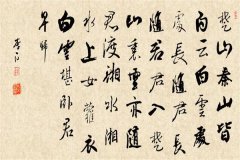 楚山秦山皆
白云白雲處
處長隨君長
隨君君入楚
山裏雲亦隨
君渡湘水湘
水上女蘿衣
白雲堪卧君
早歸